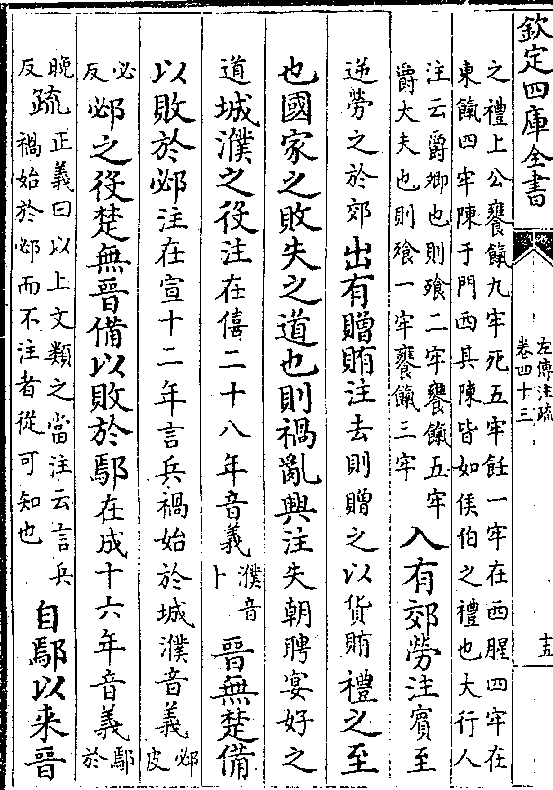 欽定四庫全書
左傳注疏
卷四十三
十五
之禮上公饔餼九牢死五牢飪一牢在西腥四牢在
東餼四牢陳于門西其陳皆如侯伯之禮也大行人
注云爵卿也則飱二牢饔餼五牢
爵大夫也則飱一牢饔餼三牢
入有郊勞注賓至
逆勞之於郊出有贈賄注去則贈之以貨賄禮之至
也國家之敗失之道也則禍亂興注失朝聘宴好之
道城濮之役注在僖二十八年音義濮音卜晉無楚備
以敗於邲注在宣十二年言兵禍始於城濮音義邲皮
必反邲之役楚無晉備以敗於鄢在成十六年音義鄢於
晚反疏
正義曰以上文類之當注云言兵
禍始於邲而不注者從可知也
自鄢以来晉